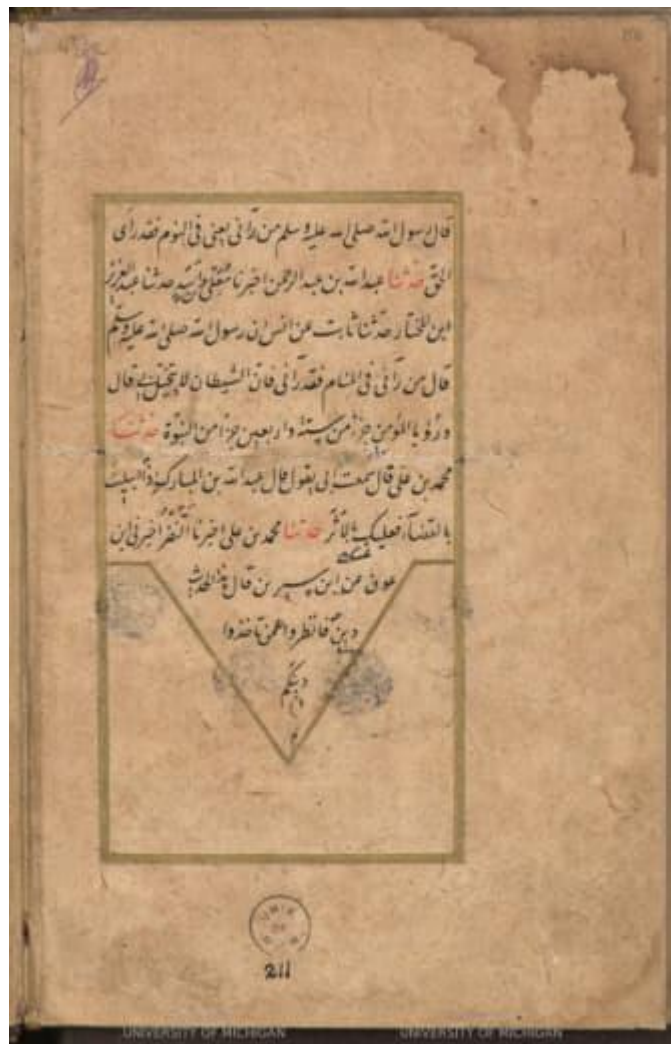 قال رسول الله صلى الله عليه وسلم من رآنى يعنى فى النوم فقد رأى
الحق حدثنا عبدالله بن عبد الرحمن اخبرنا معلى بن اسد حدثنا عبد العزيز
ابن المختار حدثنا ثابت عن انس ان رسول الله صلى الله عليه وسلم
قال من رآنى فى المنام فقد رآنى فان الشيطان لا يتخيل بى قال
ورؤيا المؤمن جزء من ستة واربعين جزأ من النبوة حدثنا
محمد بن على قال سمعت ابى يقول قال عبد الله بن المبارك اذا ابتليت
بالقضاء فعليك بالاثر حدثنا محمد بن على اخبرنا النضر اخبرنى ابن
عون عن ابن سيرين قال هذا الحديث
دين فانظروا عمن تأخذوا
دينكم
211
UNIVERSITY OF MICHIGAN
UNIVERSITY OF MICHIGAN